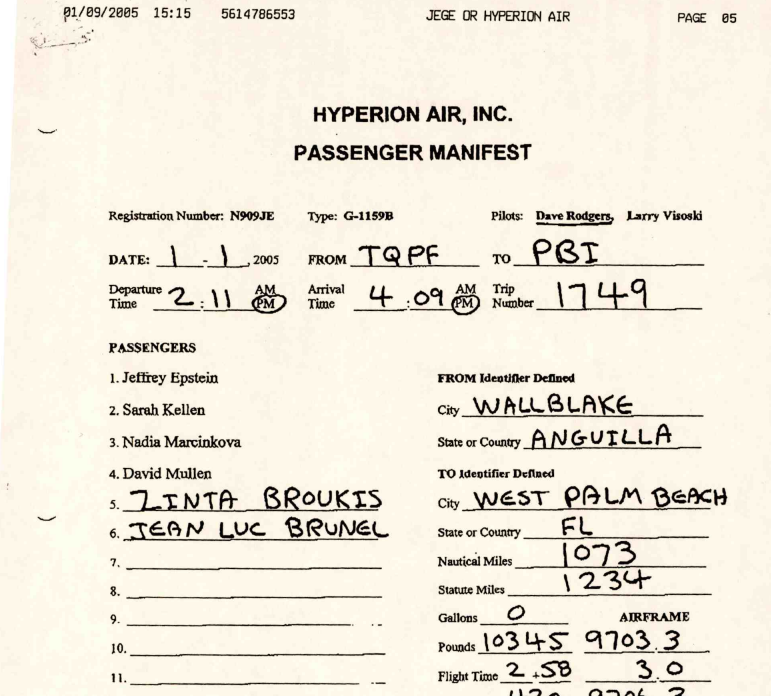 01/09/2005 15:15 5614786553 JEGE OR HYPERION AIR PAGE 05
HYPERION AIR, INC.
PASSENGER MANIFEST
Registration Number: N909JE Type: G-1159B Pilots: Dave Rodgers, Larry Visoski
DATE: 1 - 1, 2005 FROM TQPF TO PBI
Departure Time 2:11 AM PM Arrival Time 4:09 AM PM Trip Number 1749
PASSENGERS
1. Jeffrey Epstein
2. Sarah Kellen
3. Nadia Marcinkova
4. David Mullen
5. ZINTA BROUKIS
6. JEAN LUC BRUNEL
7.
8.
9.
10.
11.
FROM Identifier Defined
City WALLBLAKE
State or Country ANGUILLA
TO Identifier Defined
City WEST PALM BEACH
State or Country FL
Nautical Miles 1073
Statute Miles 1234
Gallons 0 AIRFRAME
Pounds 10345 9703.3
Flight Time 2+58 3.0